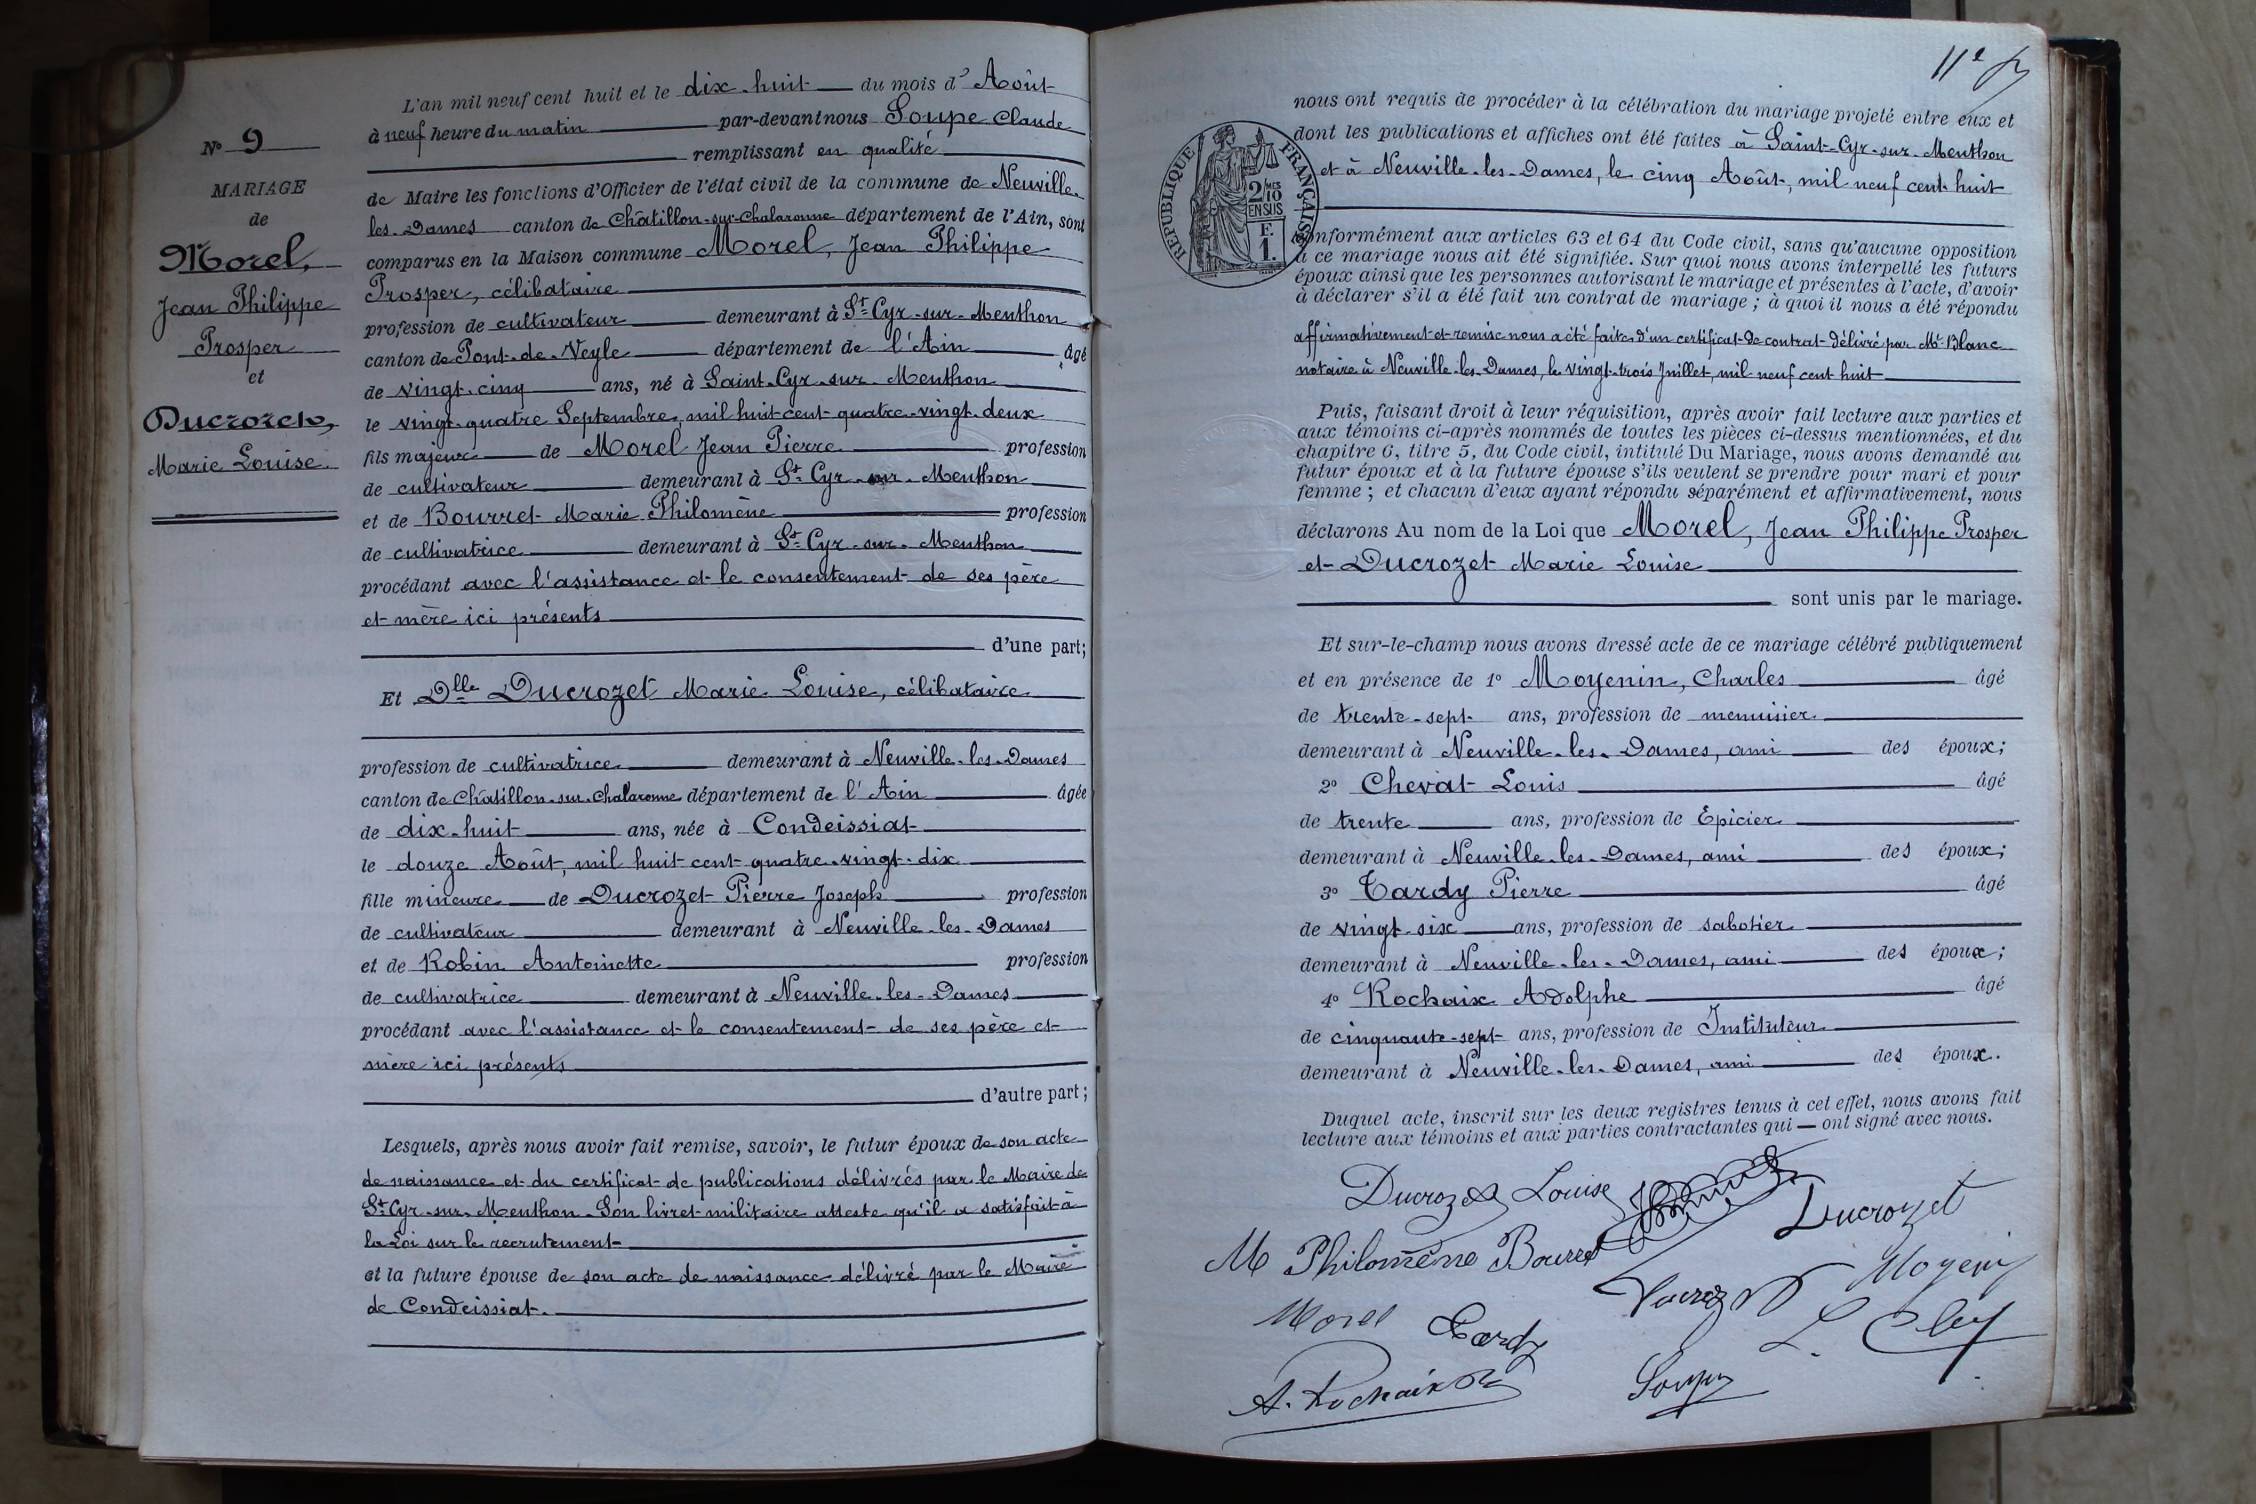 L'an mil neuf cent huit et le dix-huit du mois d'Août
à neuf heure du matin par-devant nous Soupe Claude
remplissant en qualité
de Maire les fonctions d'Officier de l'état civil de la commune de Neuville-
les-Dames canton de Châtillon-sur-Chalaronne département de l'Ain, sont
comparus en la Maison commune Morel, Jean Philippe
Prosper, célibataire
profession de cultivateur demeurant à St Cyr-sur-Menthon
canton de Pont-de-Veyle département de l'Ain âgé
de vingt-cinq ans, né à Saint-Cyr-sur-Menthon
le vingt-quatre Septembre, mil huit-cent-quatre-vingt-deux
fils majeur de Morel Jean Pierre profession
de cultivateur demeurant à St Cyr-sur-Menthon
et de Bourret Marie Philomène profession
de cultivatrice demeurant à St Cyr-sur-Menthon
procédant avec l'assistance et le consentement de ses père
et mère ici présents
d'une part;
Et Dlle Ducrozet Marie Louise, célibataire
profession de cultivatrice demeurant à Neuville-les-Dames
canton de Châtillon-sur-Chalaronne département de l'Ain âgée
de dix-huit ans, née à Condeissiat
le douze Août, mil huit-cent-quatre-vingt-dix
fille mineure de Ducrozet Pierre Joseph profession
de cultivateur demeurant à Neuville-les-Dames
et de Robin Antoinette profession
de cultivatrice demeurant à Neuville-les-Dames
procédant avec l'assistance et le consentement de ses père et
mère ici présents
d'autre part;
Lesquels, après nous avoir fait remise, savoir, le futur époux de son acte
de naissance et du certificat de publications délivrés par le Maire de
St Cyr-sur-Menthon. Son livret militaire atteste qu'il a satisfait à
la Loi sur le recrutement
et la future épouse de son acte de naissance délivré par le Maire
de Condeissiat.
No 9
MARIAGE
de
Morel,
Jean Philippe
Prosper
et
Ducrozet,
Marie Louise
11e
nous ont requis de procéder à la célébration du mariage projeté entre eux et
dont les publications et affiches ont été faites à Saint-Cyr-sur-Menthon
et à Neuville-les-Dames, le cinq Août, mil neuf cent huit
RÉPUBLIQUE FRANÇAISE
2/10 MES
EN SUS
F.
1.
conformément aux articles 63 et 64 du Code civil, sans qu'aucune opposition
à ce mariage nous ait été signifiée. Sur quoi nous avons interpellé les futurs
époux ainsi que les personnes autorisant le mariage et présentes à l'acte, d'avoir
à déclarer s'il a été fait un contrat de mariage; à quoi il nous a été répondu
affirmativement et remise nous a été faite d'un certificat de contrat délivré par Me Blanc
notaire à Neuville-les-Dames, le vingt-trois Juillet, mil neuf cent huit
Puis, faisant droit à leur réquisition, après avoir fait lecture aux parties et
aux témoins ci-après nommés de toutes les pièces ci-dessus mentionnées, et du
chapitre 6, titre 5, du Code civil, intitulé Du Mariage, nous avons demandé au
futur époux et à la future épouse s'ils veulent se prendre pour mari et pour
femme; et chacun d'eux ayant répondu séparément et affirmativement, nous
déclarons Au nom de la Loi que Morel, Jean Philippe Prosper
et Ducrozet Marie Louise
sont unis par le mariage.
Et sur-le-champ nous avons dressé acte de ce mariage célébré publiquement
et en présence de 1° Moyenin, Charles âgé
de trente-sept ans, profession de menuisier
demeurant à Neuville-les-Dames, ami des époux;
2° Chevat Louis âgé
de trente ans, profession de Epicier
demeurant à Neuville-les-Dames, ami des époux;
3° Tardy Pierre âgé
de vingt-six ans, profession de sabotier
demeurant à Neuville-les-Dames, ami des époux;
4° Rochaix Adolphe âgé
de cinquante-sept ans, profession de Instituteur
demeurant à Neuville-les-Dames, ami des époux.
Duquel acte, inscrit sur les deux registres tenus à cet effet, nous avons fait
lecture aux témoins et aux parties contractantes qui — ont signé avec nous.
Ducrozet Louise
Ducrozet
M Philomène Bourret
Moyenin
Morel Tardy
A. Rochaix
Soupe